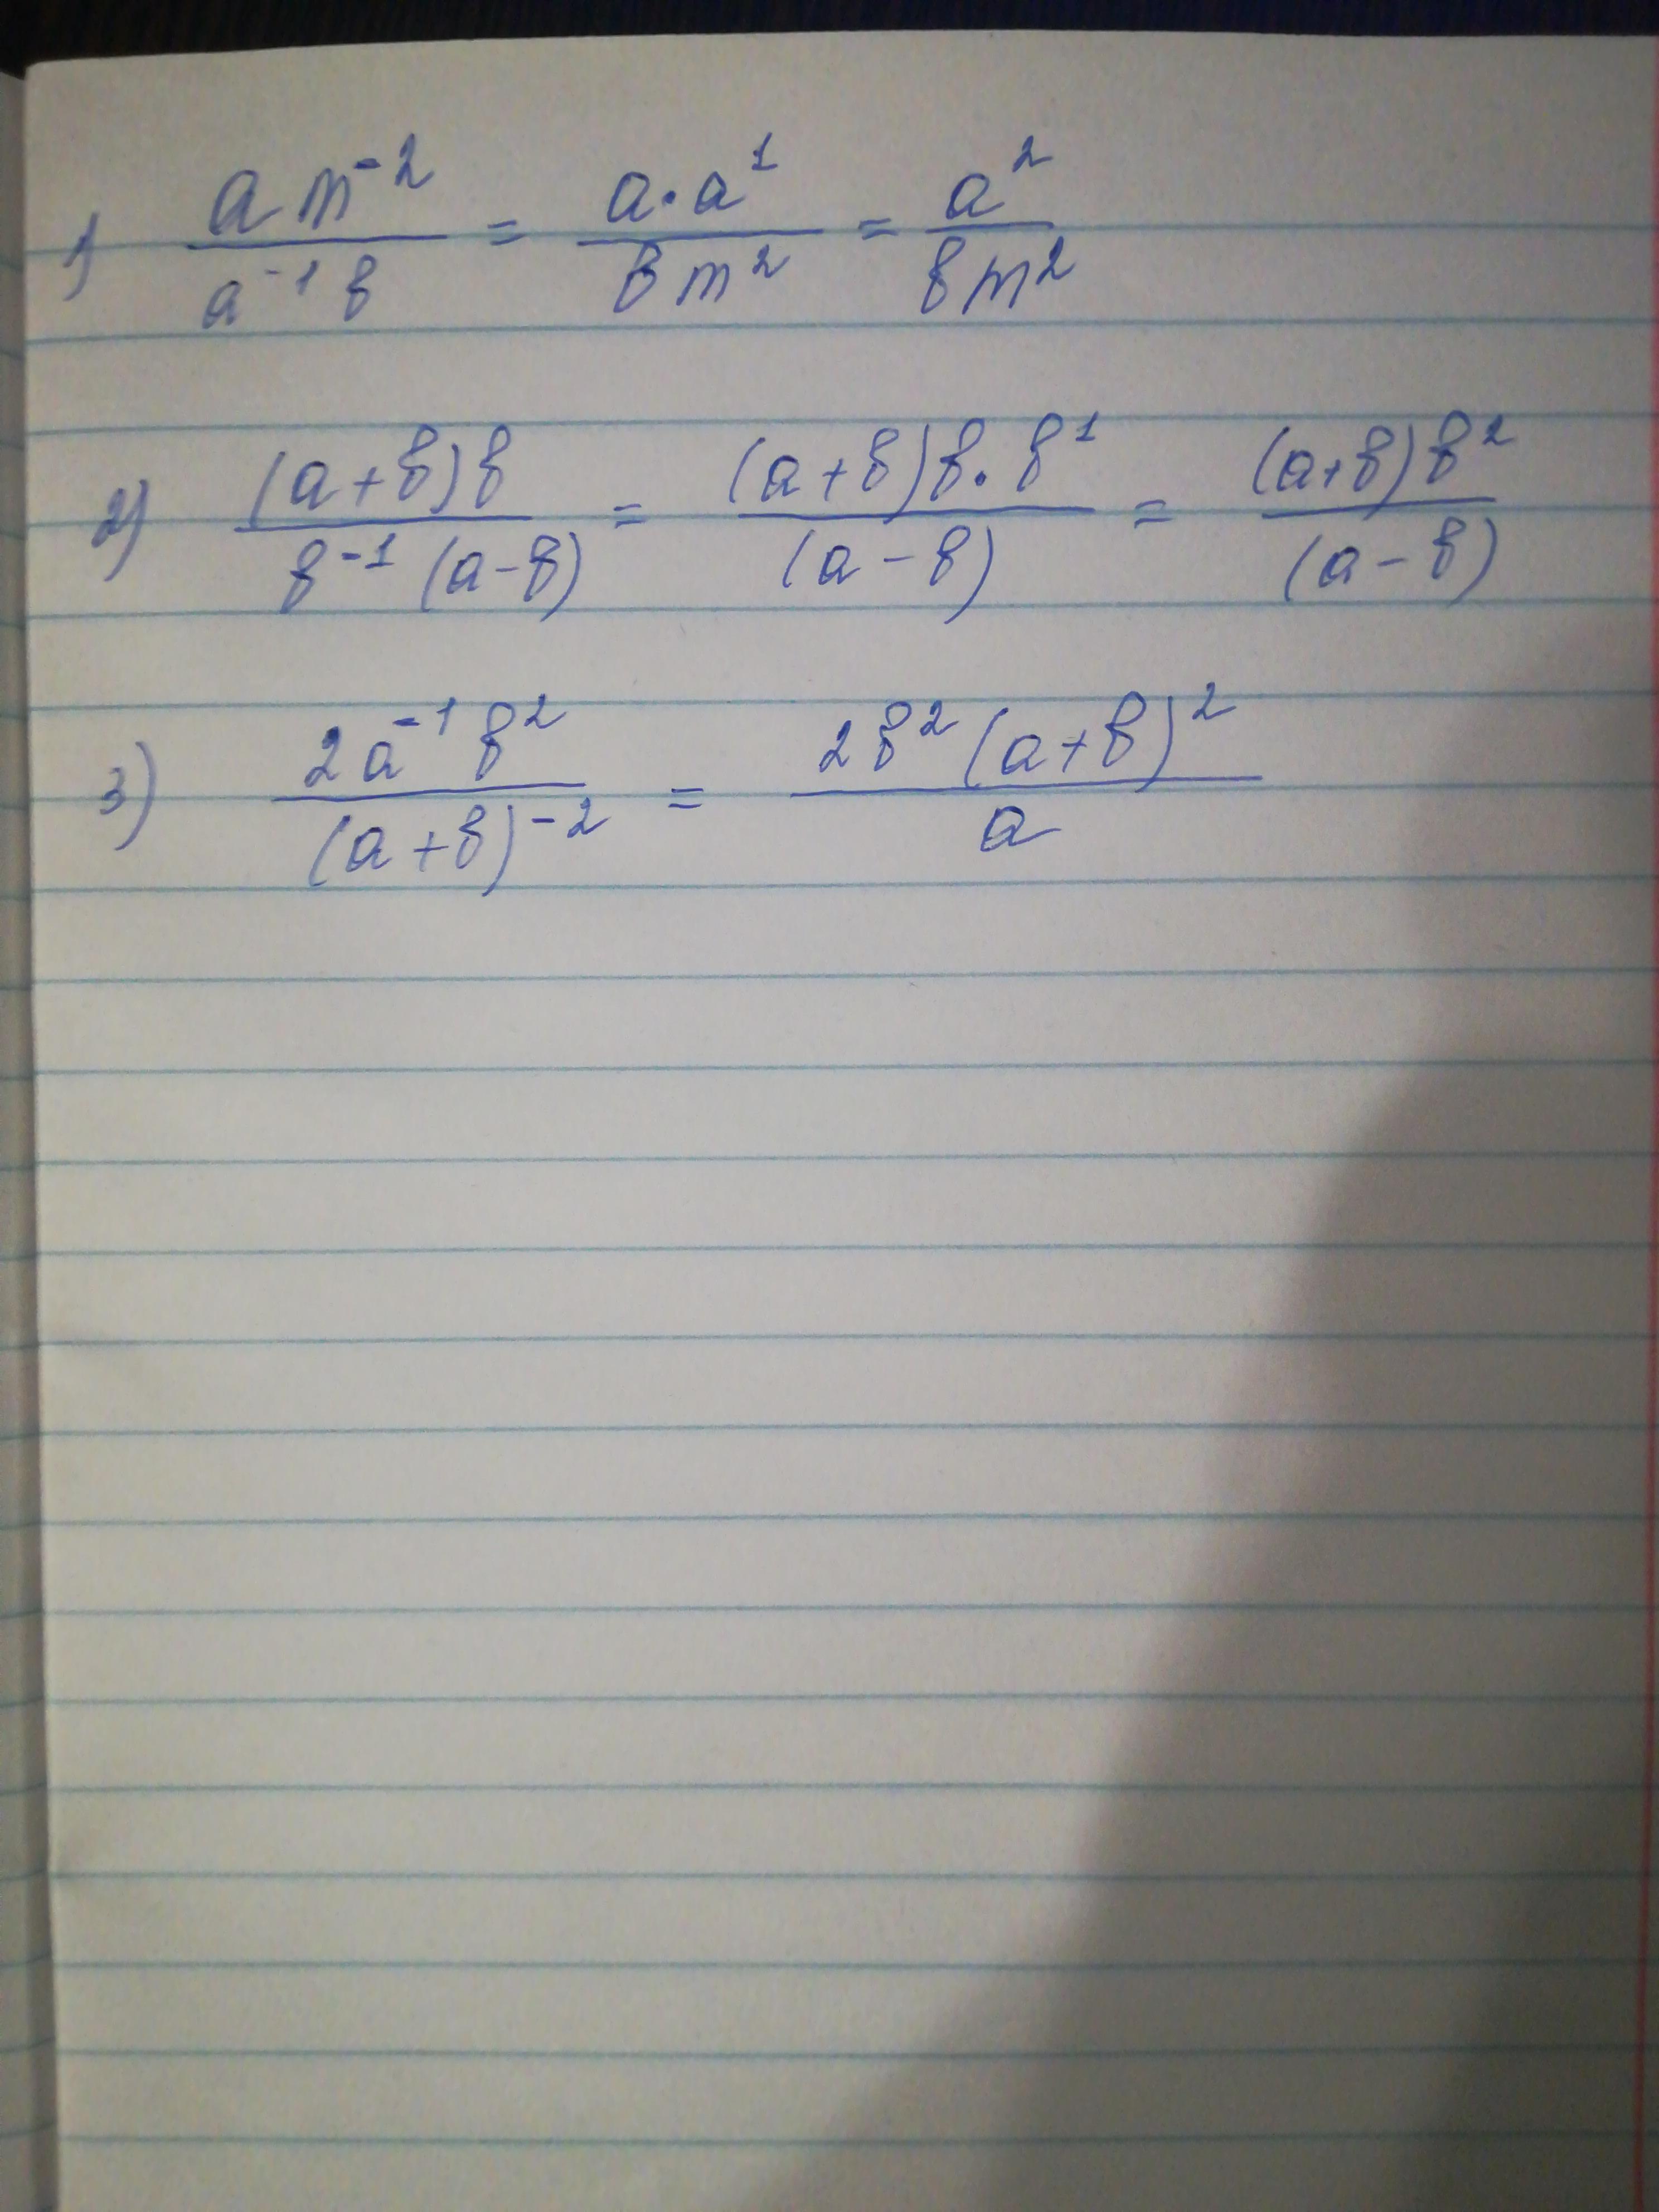 1) \frac{a m^{-2}}{a^{-1} b} = \frac{a \cdot a^{1}}{b m^{2}} = \frac{a^{2}}{b m^{2}}
2) \frac{(a+b) b}{b^{-1} (a-b)} = \frac{(a+b) b \cdot b^{1}}{(a-b)} = \frac{(a+b) b^{2}}{(a-b)}
3) \frac{2 a^{-1} b^{2}}{(a+b)^{-2}} = \frac{2 b^{2} (a+b)^{2}}{a}